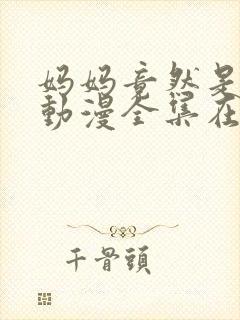 妈妈竟然是
動漫全集在
千骨頭